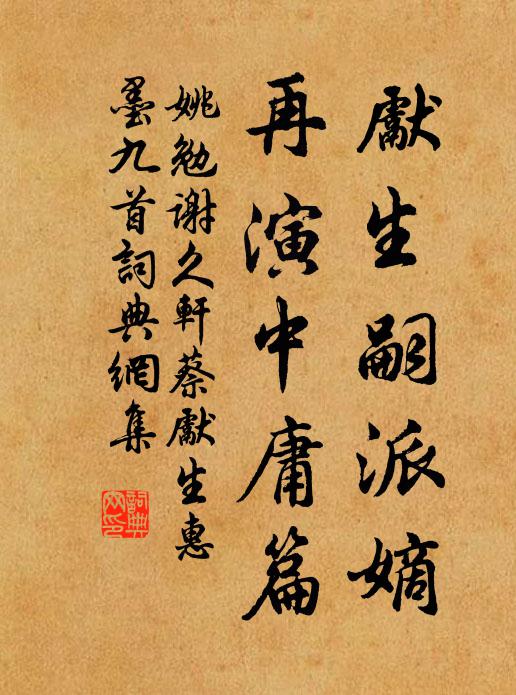 獻生嗣派嫡
再演中庸篇
姚勉謝久軒蔡獻生惠
墨九首詞典網集
詞典網印